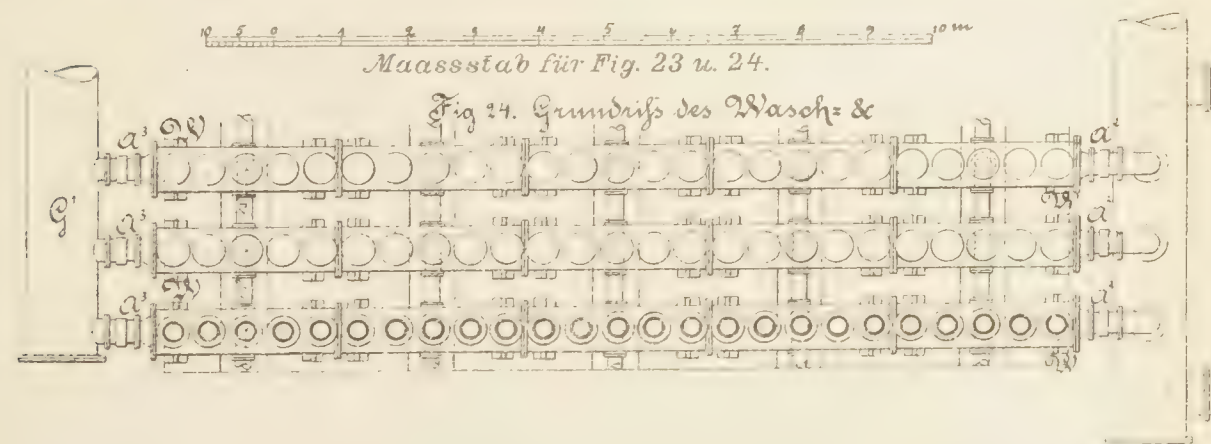 10 5 0 1 2 3 4 5 6 7 8 9 10 m
Maassstab für Fig. 23 u. 24.
Fig 24. Grundriſs des Wasch= &
a³ W a²
G¹
W
a³ a²
W
a³ a²
W